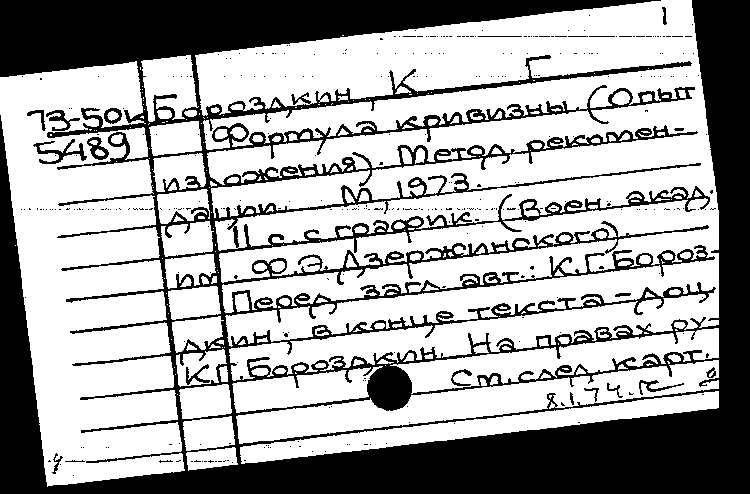 1
73-50к Бороздкин, К Г
5489 Формула кривизны. (Опыт
изложения). Метод. рекомен-
дации. М, 1973.
11 с. с график. (Воен. акад.
им. Ф.Э. Дзержинского).
Перед загл. авт.: К.Г. Бороз-
дкин; в конце текста - доц.
К.Г. Бороздкин. На правах ру-
См. след. карт.
8.1.74.